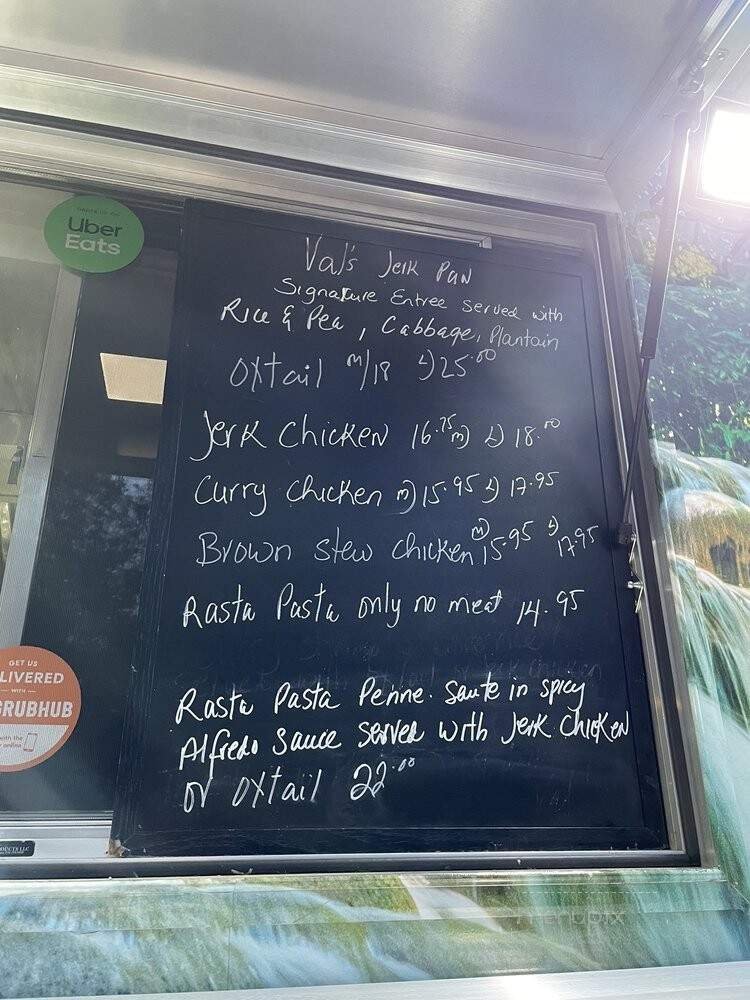 Uber
Eats
Val's Jerk Pan
Signature Entree served with
Rice & Pea, Cabbage, Plantain
Oxtail m/18 L)25.00
Jerk Chicken 16.75 m) L) 18.00
Curry chicken m) 15.95 L) 17.95
Brown stew chicken (M) 15.95 L) 17.95
Rasta Pasta only no meat 14.95
Rasta Pasta Penne. Saute in spicy
Alfredo Sauce served with Jerk Chicken
or oxtail 22.00
GET US
LIVERED
WITH
GRUBHUB
with the
online